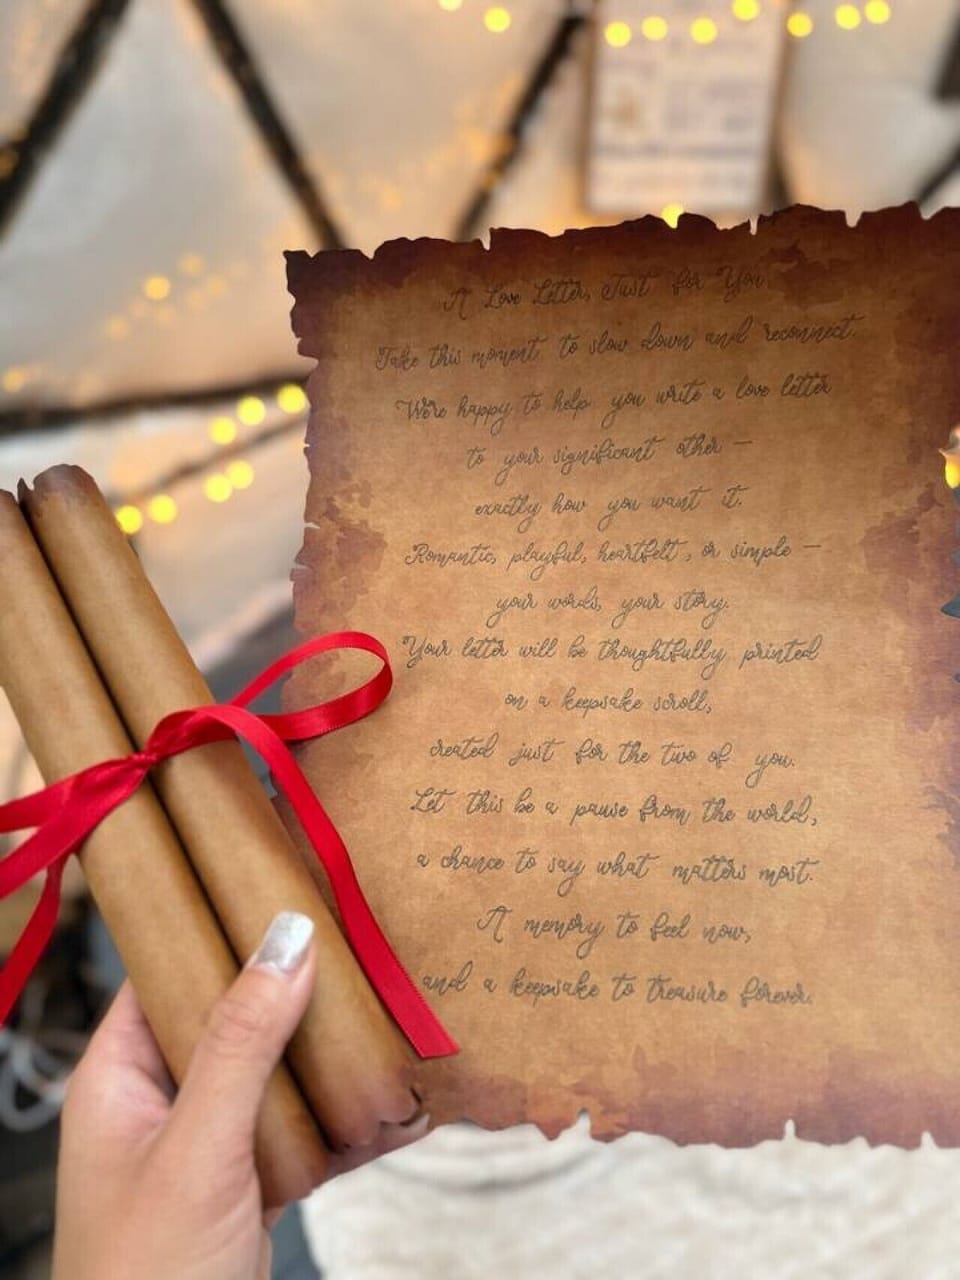 A Love Letter, Just for You
Take this moment to slow down and reconnect.
We're happy to help you write a love letter
to your significant other —
exactly how you want it.
Romantic, playful, heartfelt, or simple —
your words, your story.
Your letter will be thoughtfully printed
on a keepsake scroll,
created just for the two of you.
Let this be a pause from the world,
a chance to say what matters most.
A memory to feel now,
and a keepsake to treasure forever.